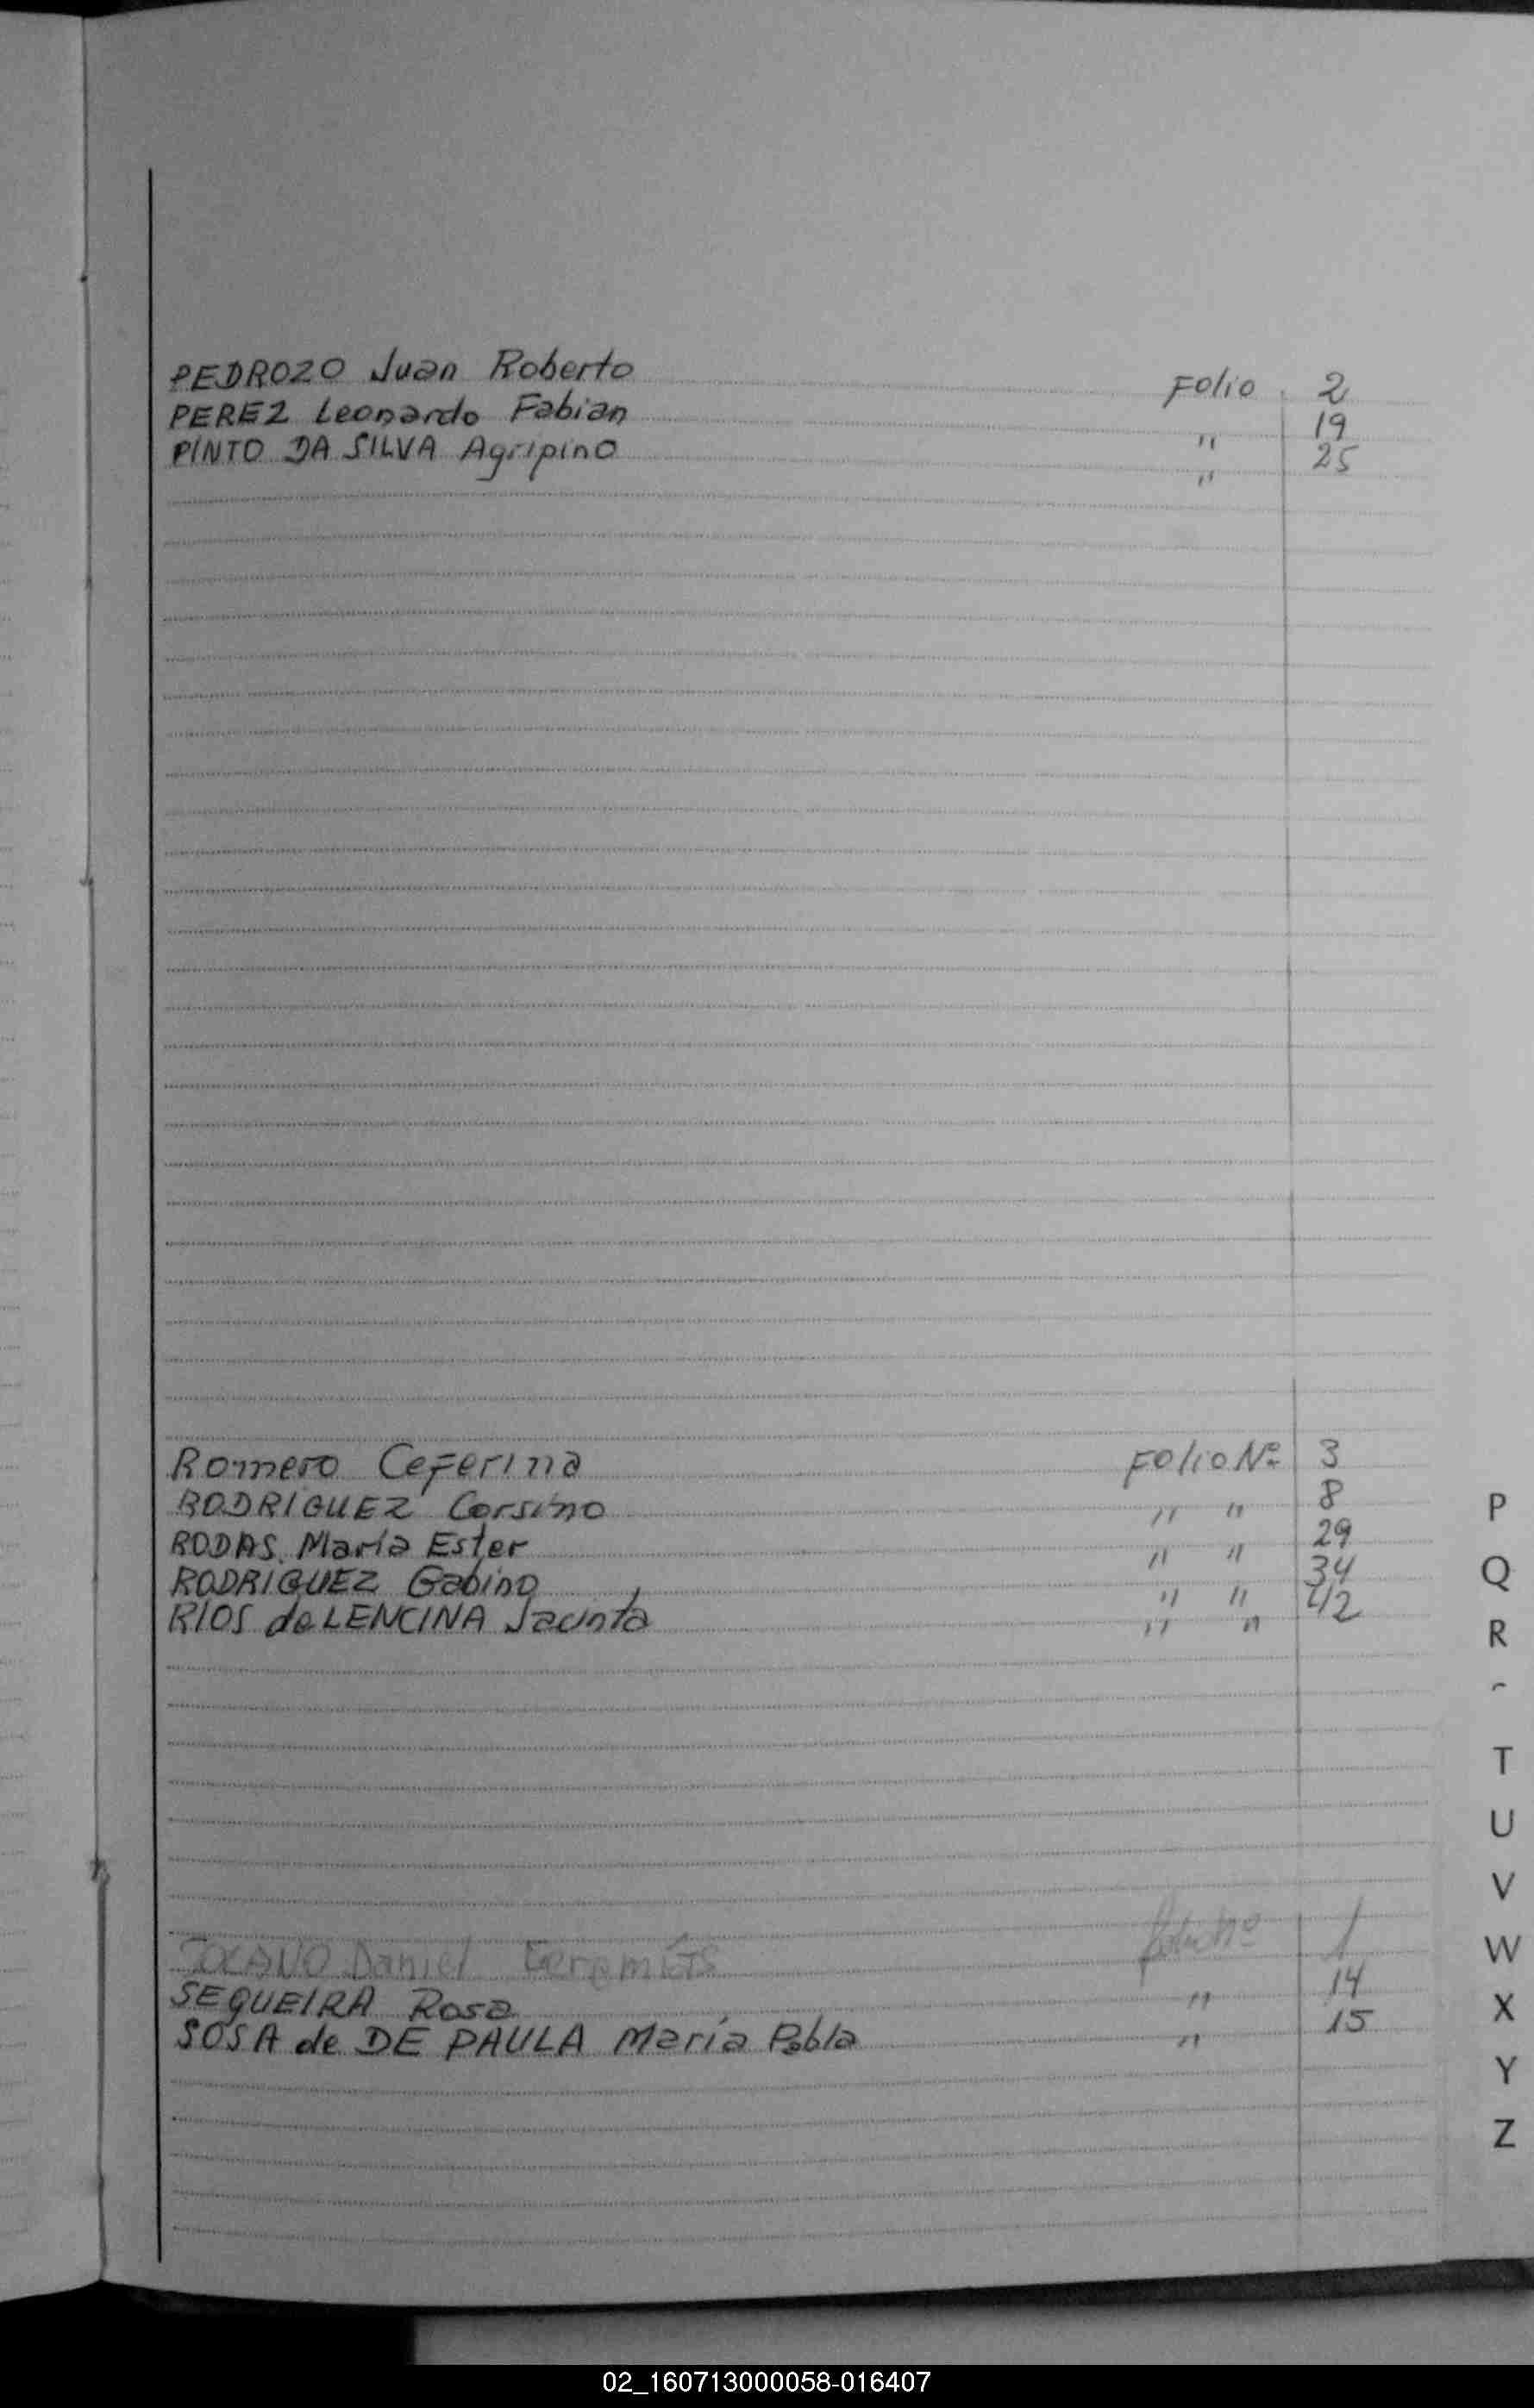 PEDROZO Juan Roberto Folio 2
PEREZ Leonardo Fabian " 19
PINTO DA SILVA Agripino " 25
Romero Ceferina Folio Nº 3
RODRIGUEZ Corsino " " 8
RODAS María Ester " " 29
RODRIGUEZ Gabino " " 34
RIOS de LENCINA Jacinta " " 42
Daniel 1
SEQUEIRA Rosa " 14
SOSA de DE PAULA María Pabla " 15
P
Q
R
T
U
V
W
X
Y
Z
02_160713000058-016407